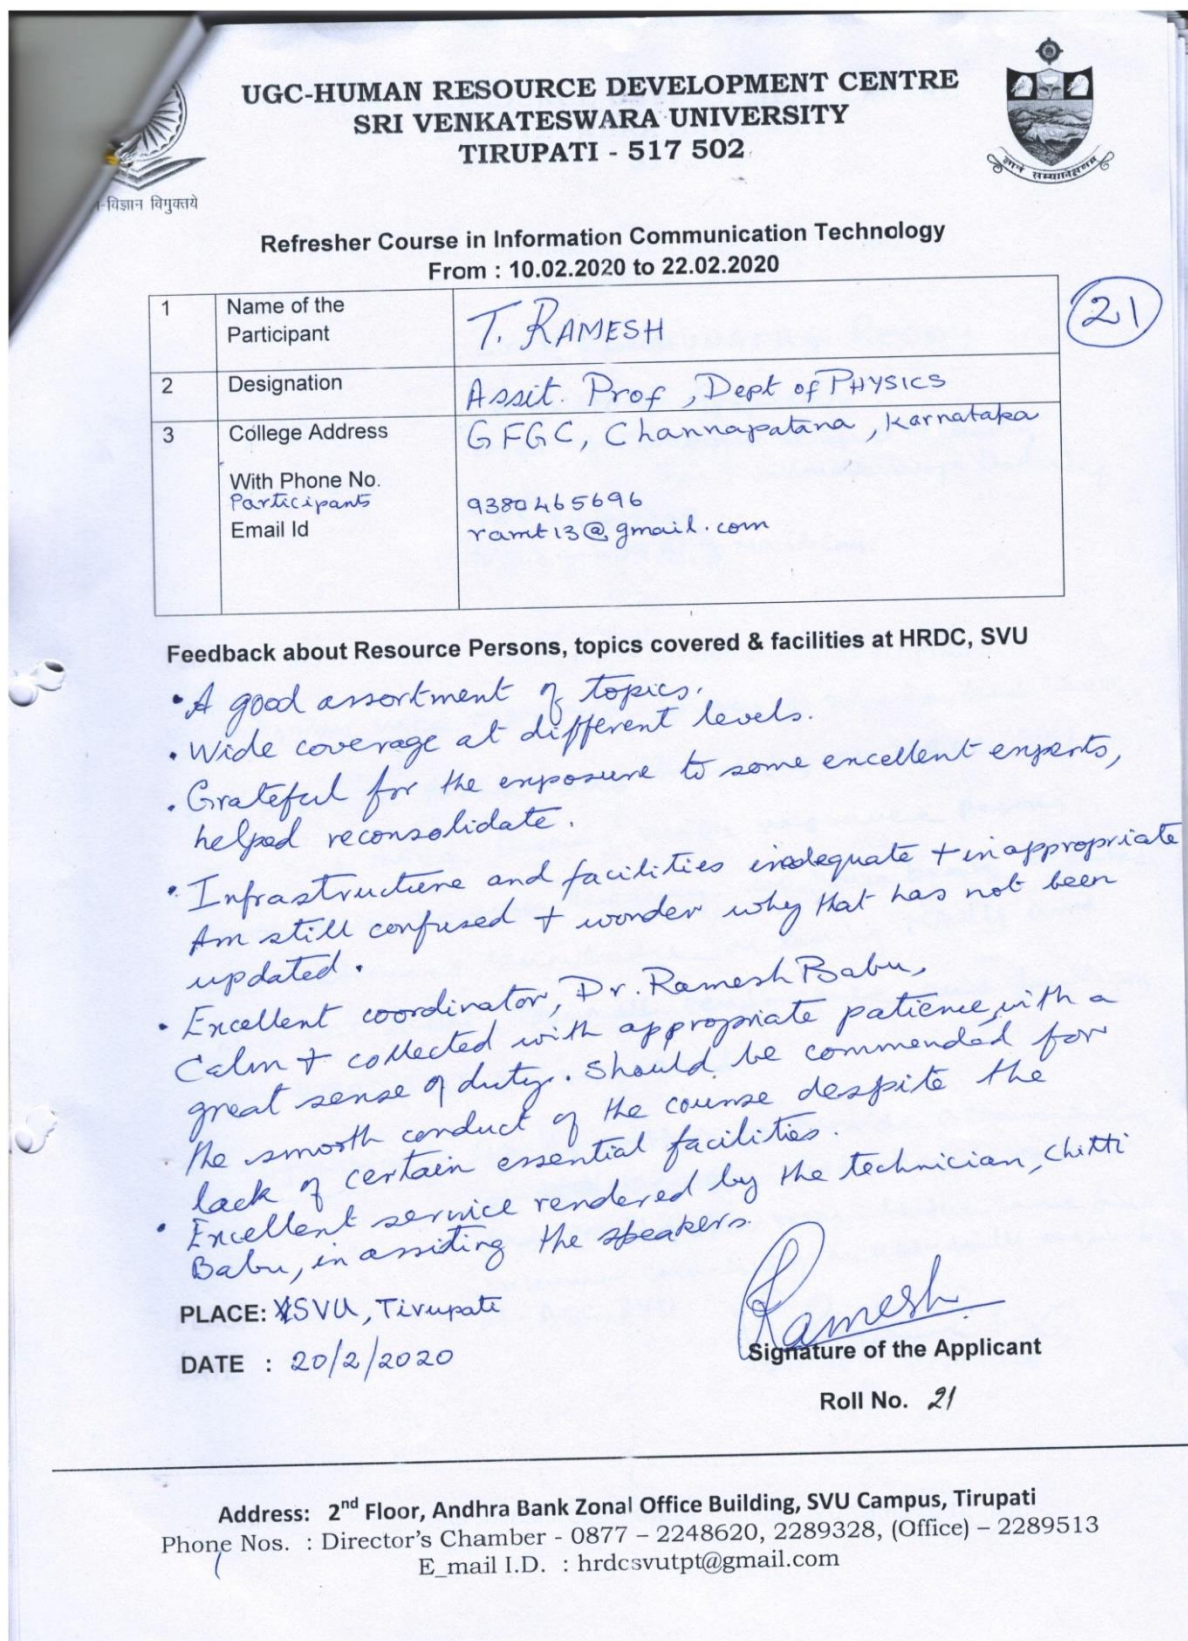 UGC-HUMAN RESOURCE DEVELOPMENT CENTRE
SRI VENKATESWARA UNIVERSITY
TIRUPATI - 517 502
-विज्ञान विमुक्तये
ज्ञानं सम्यगवेक्षणम्
Refresher Course in Information Communication Technology
From : 10.02.2020 to 22.02.2020
21
1 Name of the Participant T. RAMESH
2 Designation Assit. Prof, Dept of PHYSICS
3 College Address GFGC, Channapatana, Karnataka
With Phone No.
Participants 9380465696
Email Id ramt13@gmail.com
Feedback about Resource Persons, topics covered & facilities at HRDC, SVU
• A good assortment of topics.
• Wide coverage at different levels.
• Grateful for the exposure to some excellent experts,
helped reconsolidate.
• Infrastructure and facilities inadequate + inappropriate
Am still confused + wonder why that has not been
updated.
• Excellent coordinator, Dr. Ramesh Babu,
Calm + collected with appropriate patience, with a
great sense of duty. Should be commended for
the smooth conduct of the course despite the
lack of certain essential facilities.
• Excellent service rendered by the technician, Chitti
Babu, in assiting the speakers.
PLACE: SVU, Tirupati
DATE : 20/2/2020
Ramesh
Signature of the Applicant
Roll No. 21
Address: 2nd Floor, Andhra Bank Zonal Office Building, SVU Campus, Tirupati
Phone Nos. : Director's Chamber - 0877 – 2248620, 2289328, (Office) – 2289513
E_mail I.D. : hrdcsvutpt@gmail.com